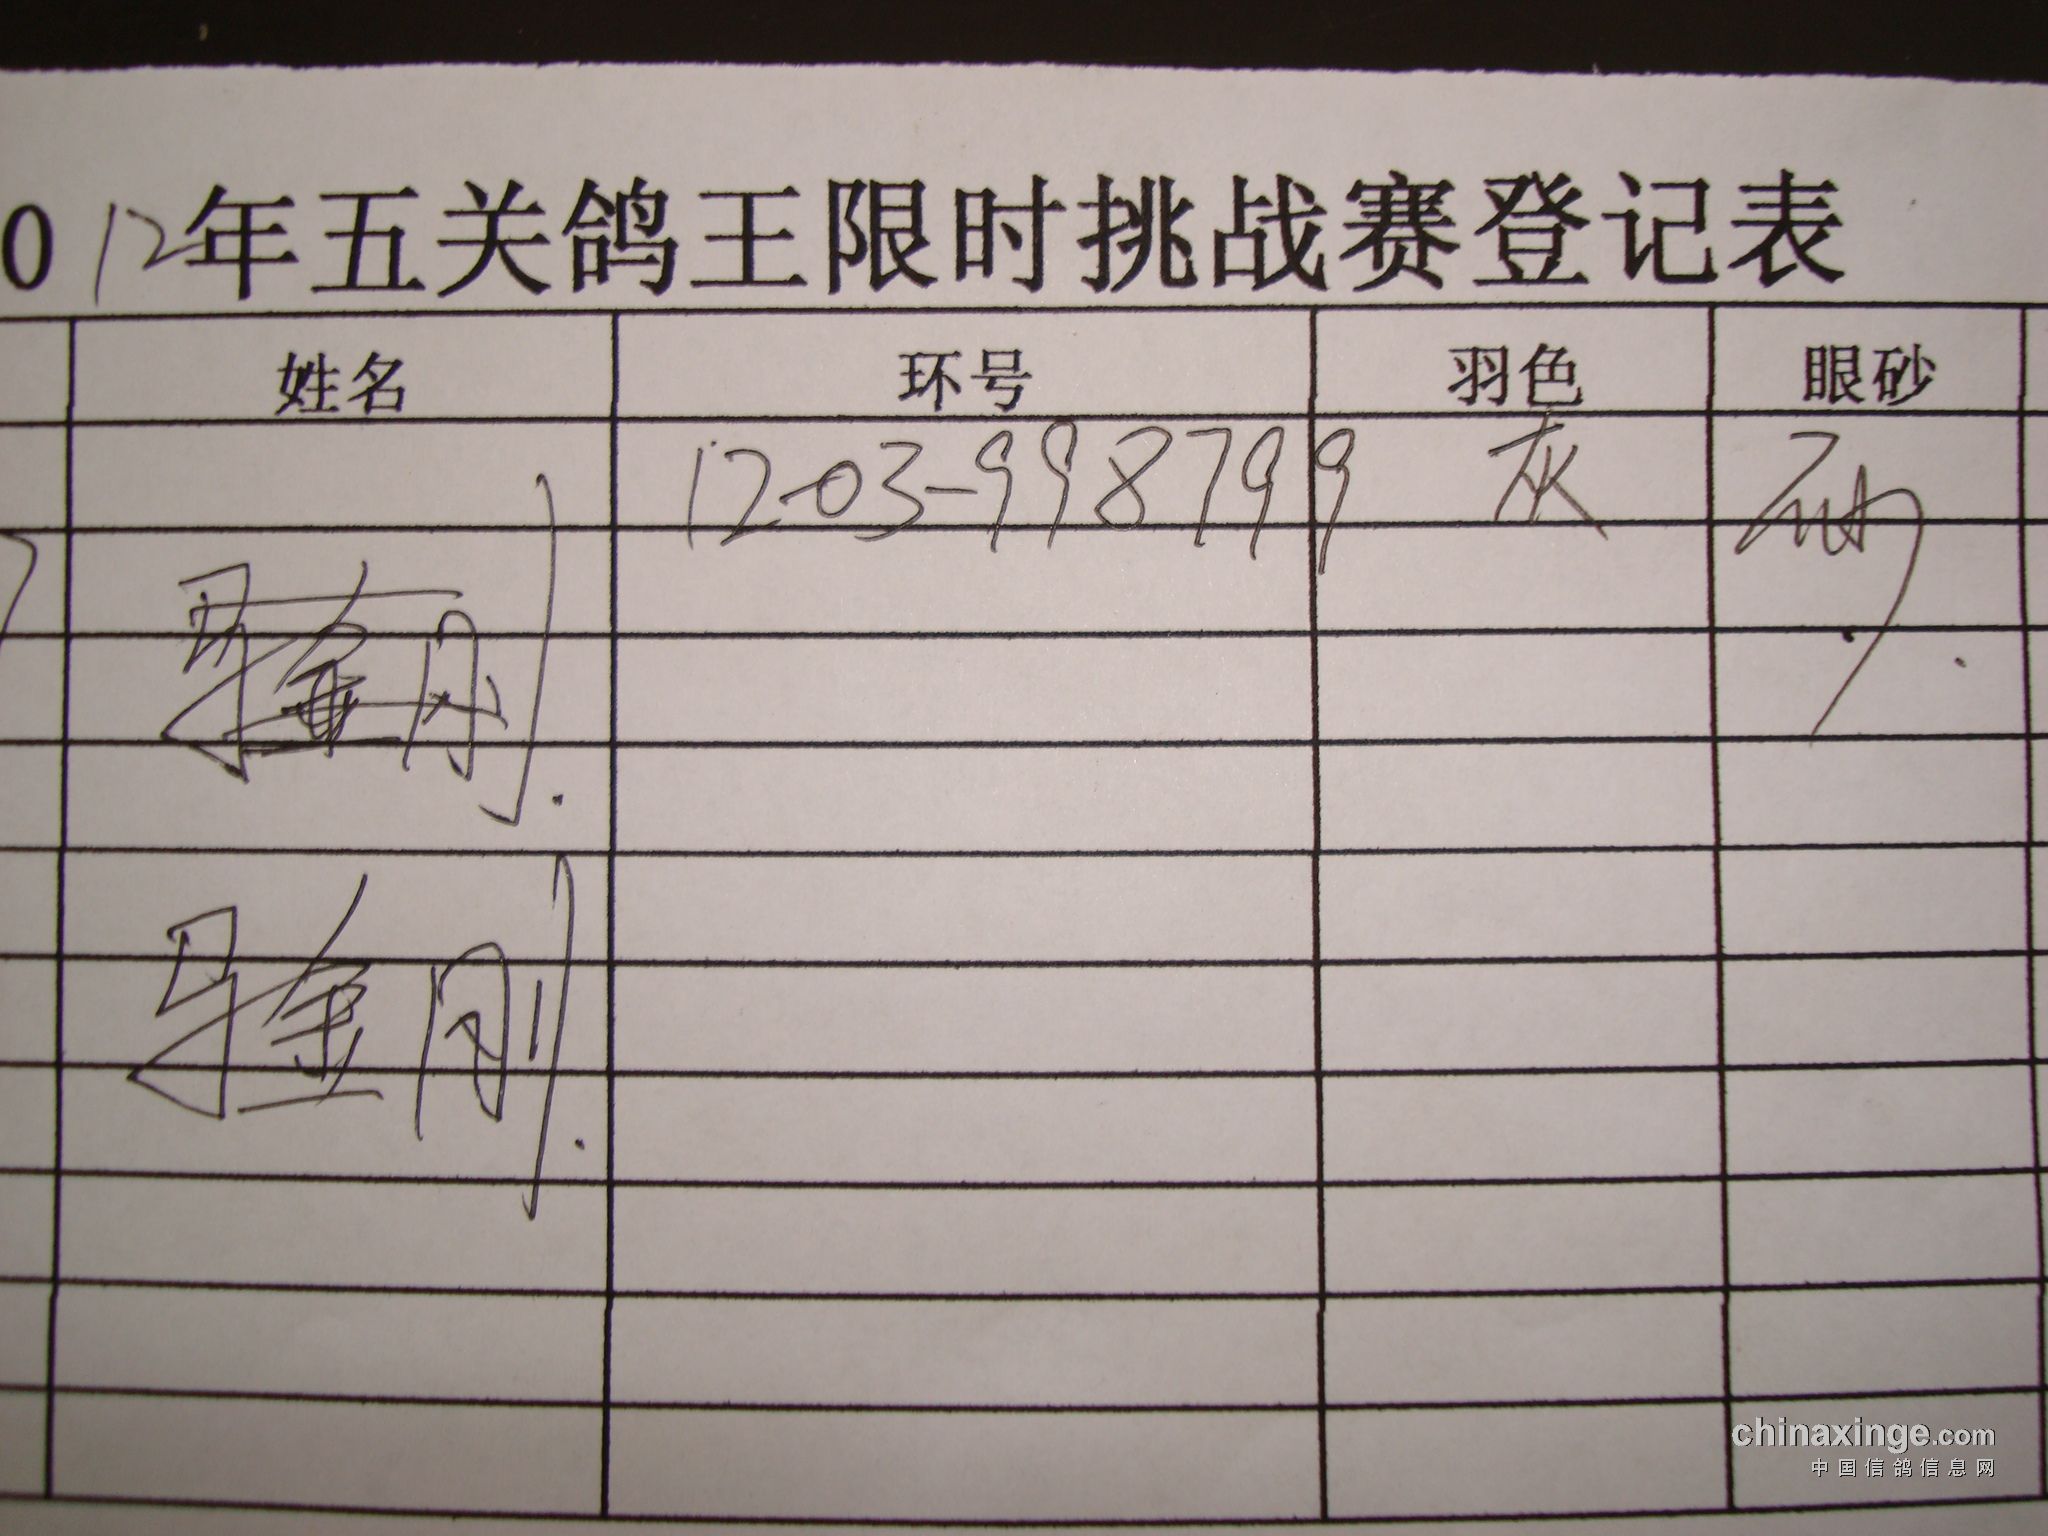 012年五关鸽王限时挑战赛登记表
姓名 环号 羽色 眼砂
12-03-998799 灰 砂
金刚
金刚
chinaxinge.com
中国信鸽信息网